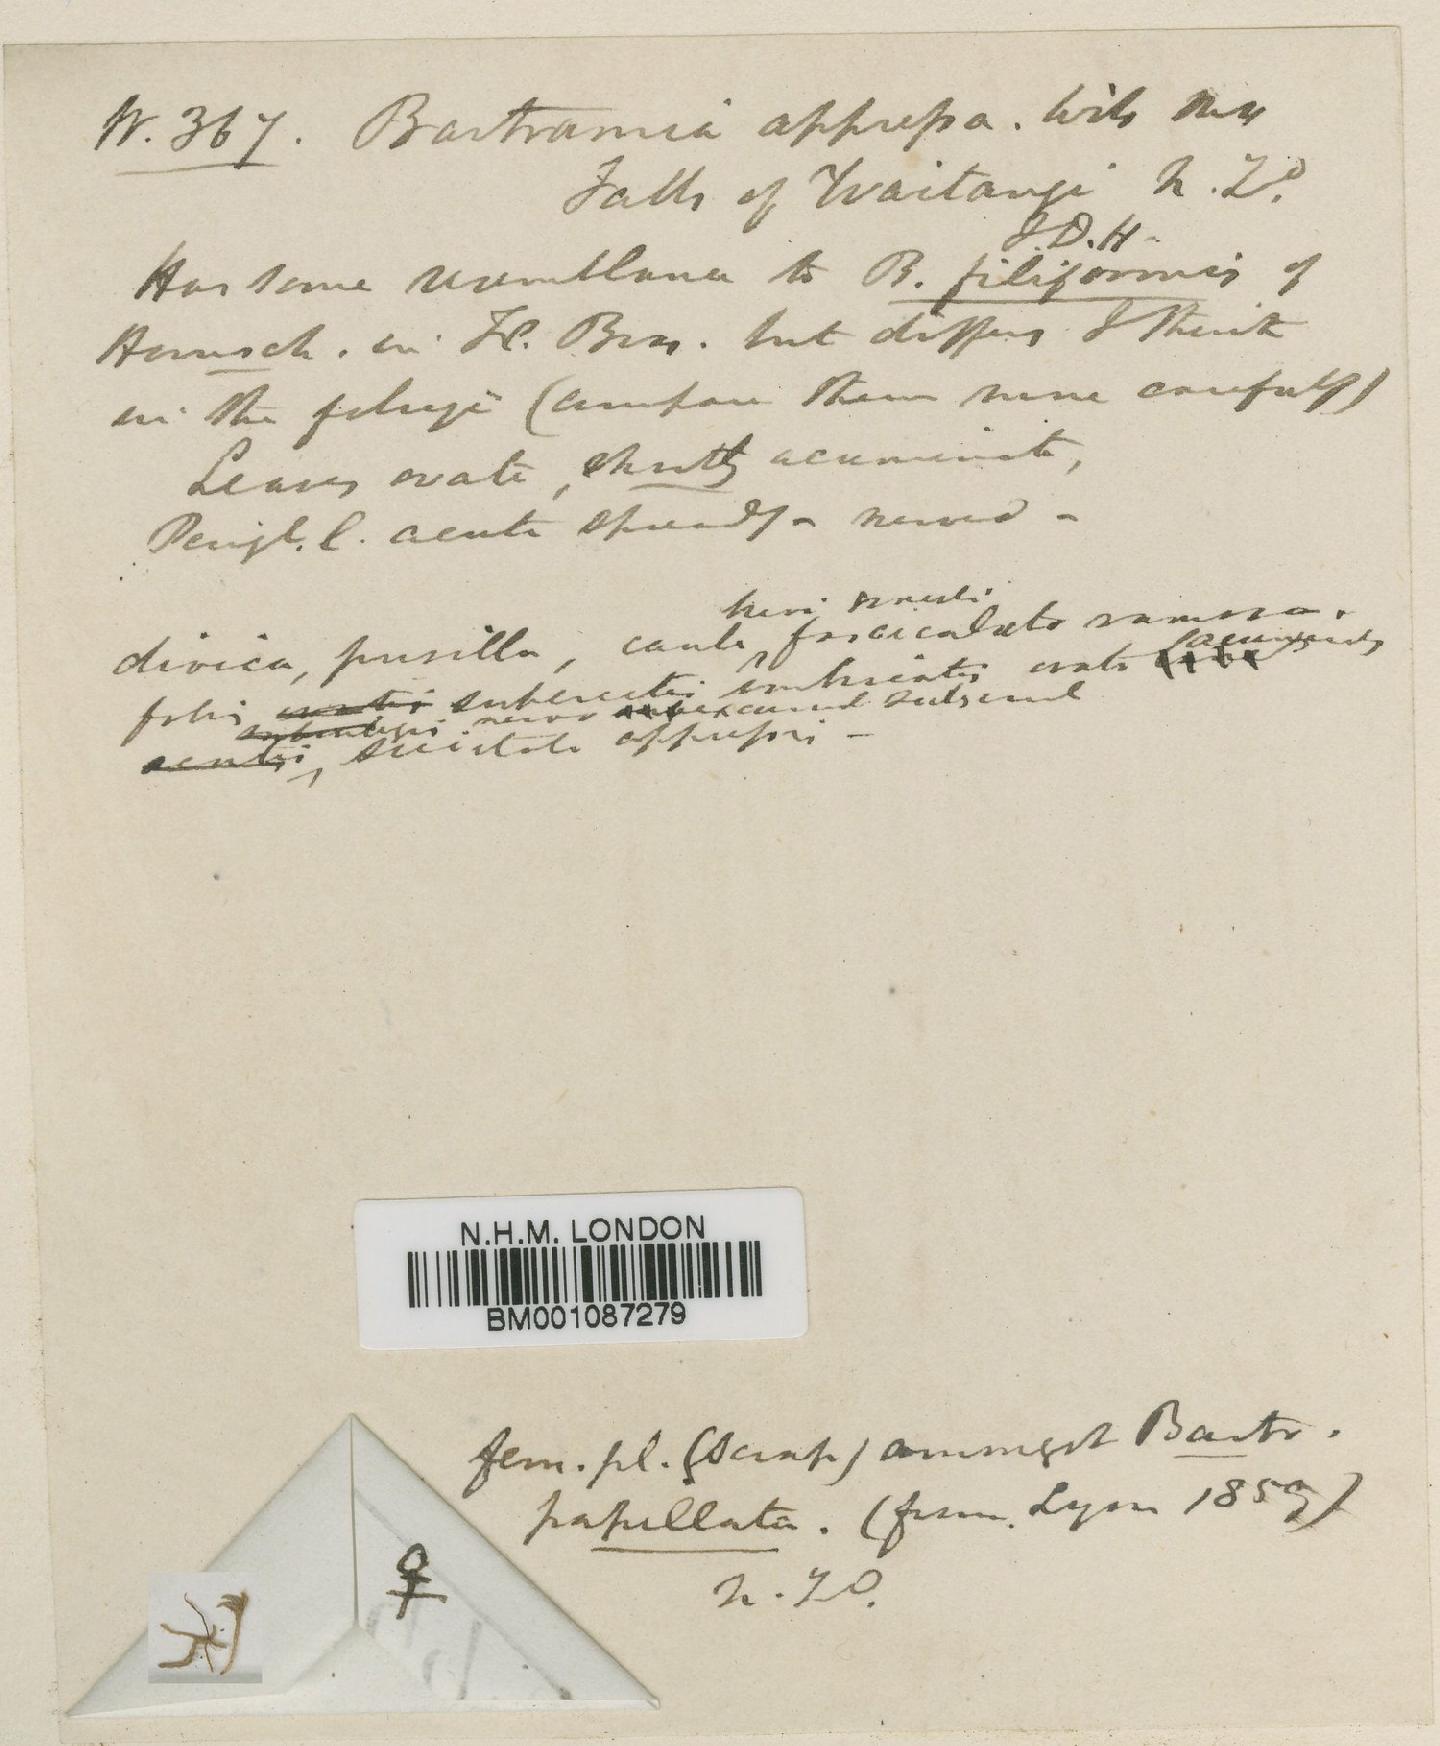 W. 367. Bartramia appressa. Wils mss
Falls of Waitangi N. Zd.
J.D.H.
Has some resemblance to B. filiformis of
Hornsch. in Fl. Bras. but differs I think
in the foliage (compare them more carefully)
Leaves ovate, shortly acuminate,
Perigl. l. acute spreadg - nerved -
dioica, pusilla, caule fasciculato ramoso.
foliis suberectis imbricatis ovato acuminatis
nervo excurrent
acutis, siccitate appressis -
N.H.M. LONDON
BM001087279
fem. pl. (scrap) amongst Bartr.
papillata. (from Lyon 1859)
N. ZD.
♀